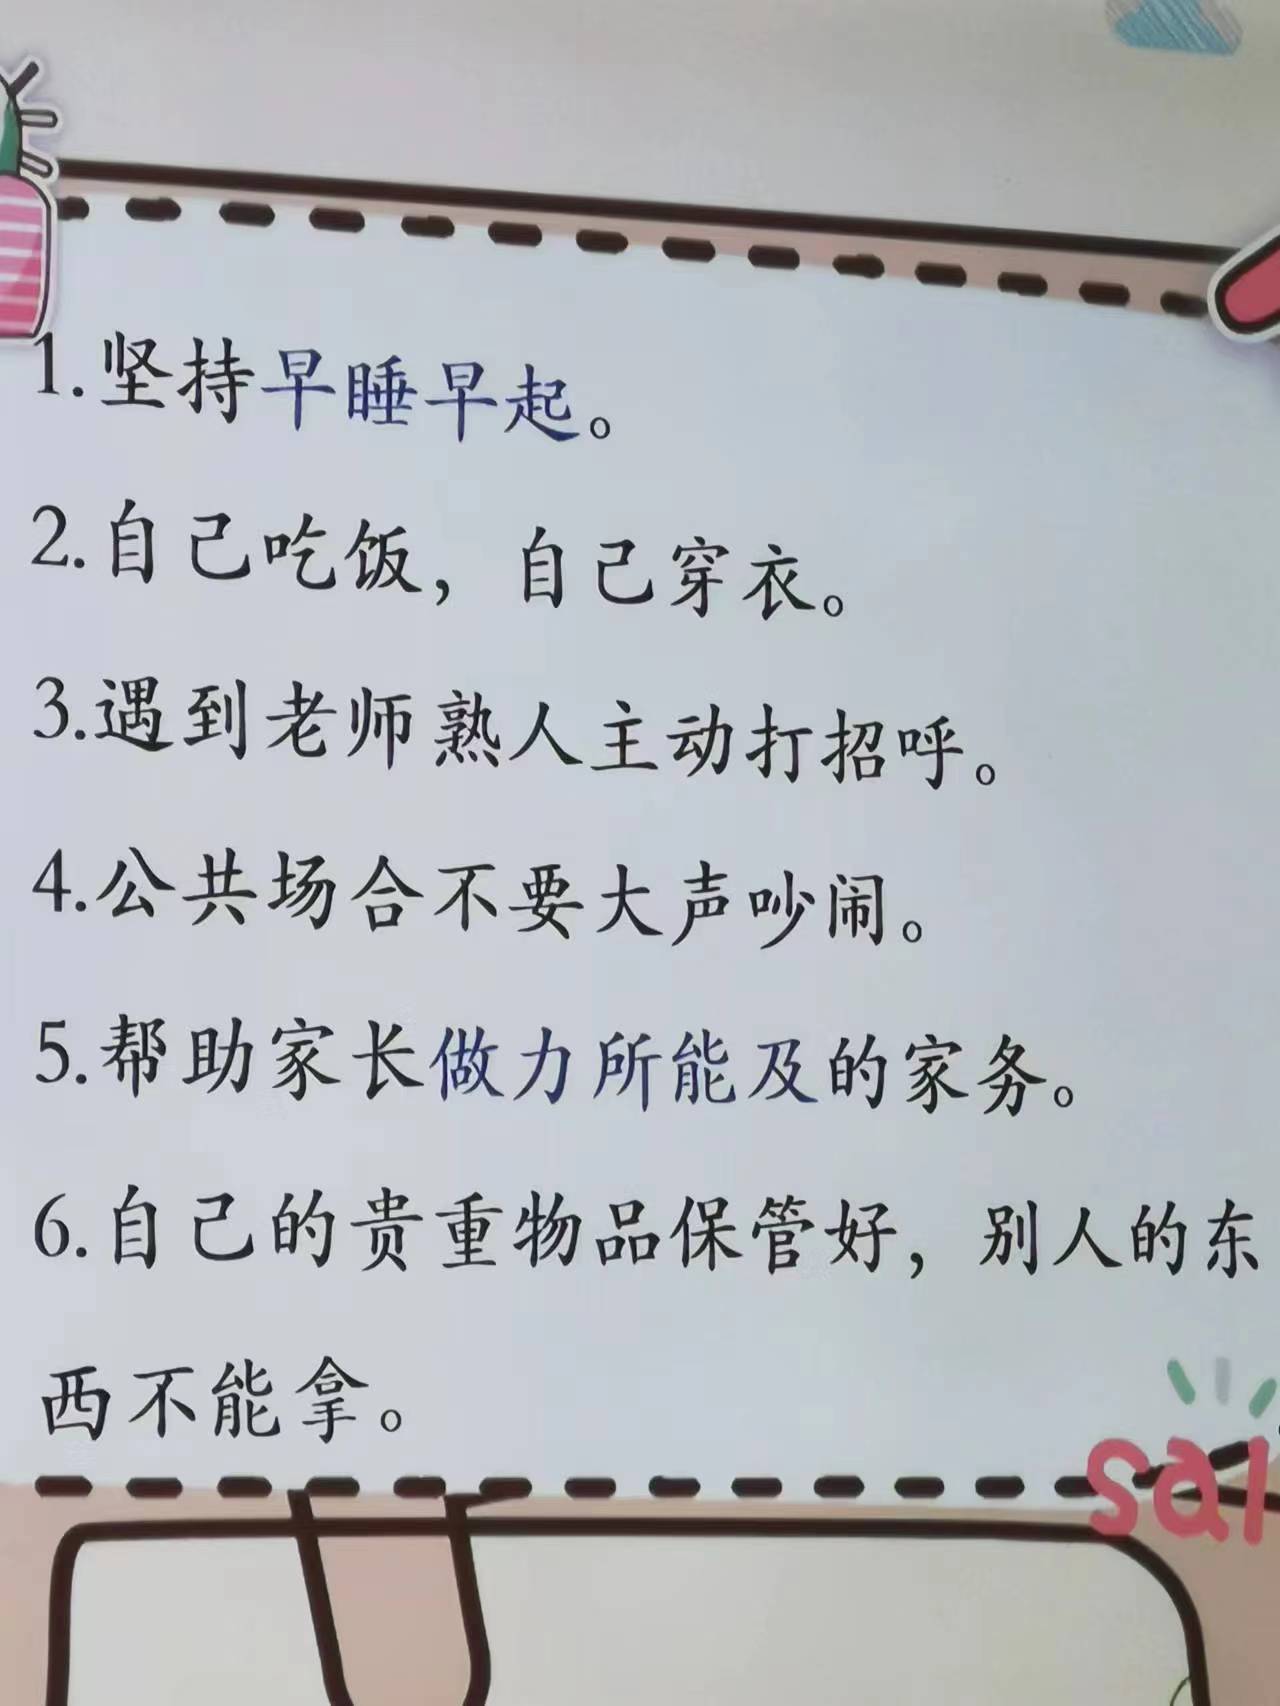 1.坚持早睡早起。
2.自己吃饭，自己穿衣。
3.遇到老师熟人主动打招呼。
4.公共场合不要大声吵闹。
5.帮助家长做力所能及的家务。
6.自己的贵重物品保管好，别人的东
西不能拿。